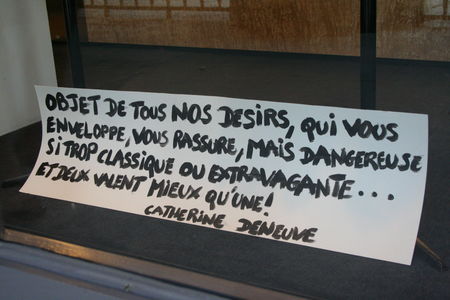 OBJET DE TOUS NOS DESIRS, QUI VOUS
ENVELOPPE, VOUS RASSURE, MAIS DANGEREUSE
SI TROP CLASSIQUE OU EXTRAVAGANTE...
ET DEUX VALENT MIEUX QU'UNE!
CATHERINE DENEUVE